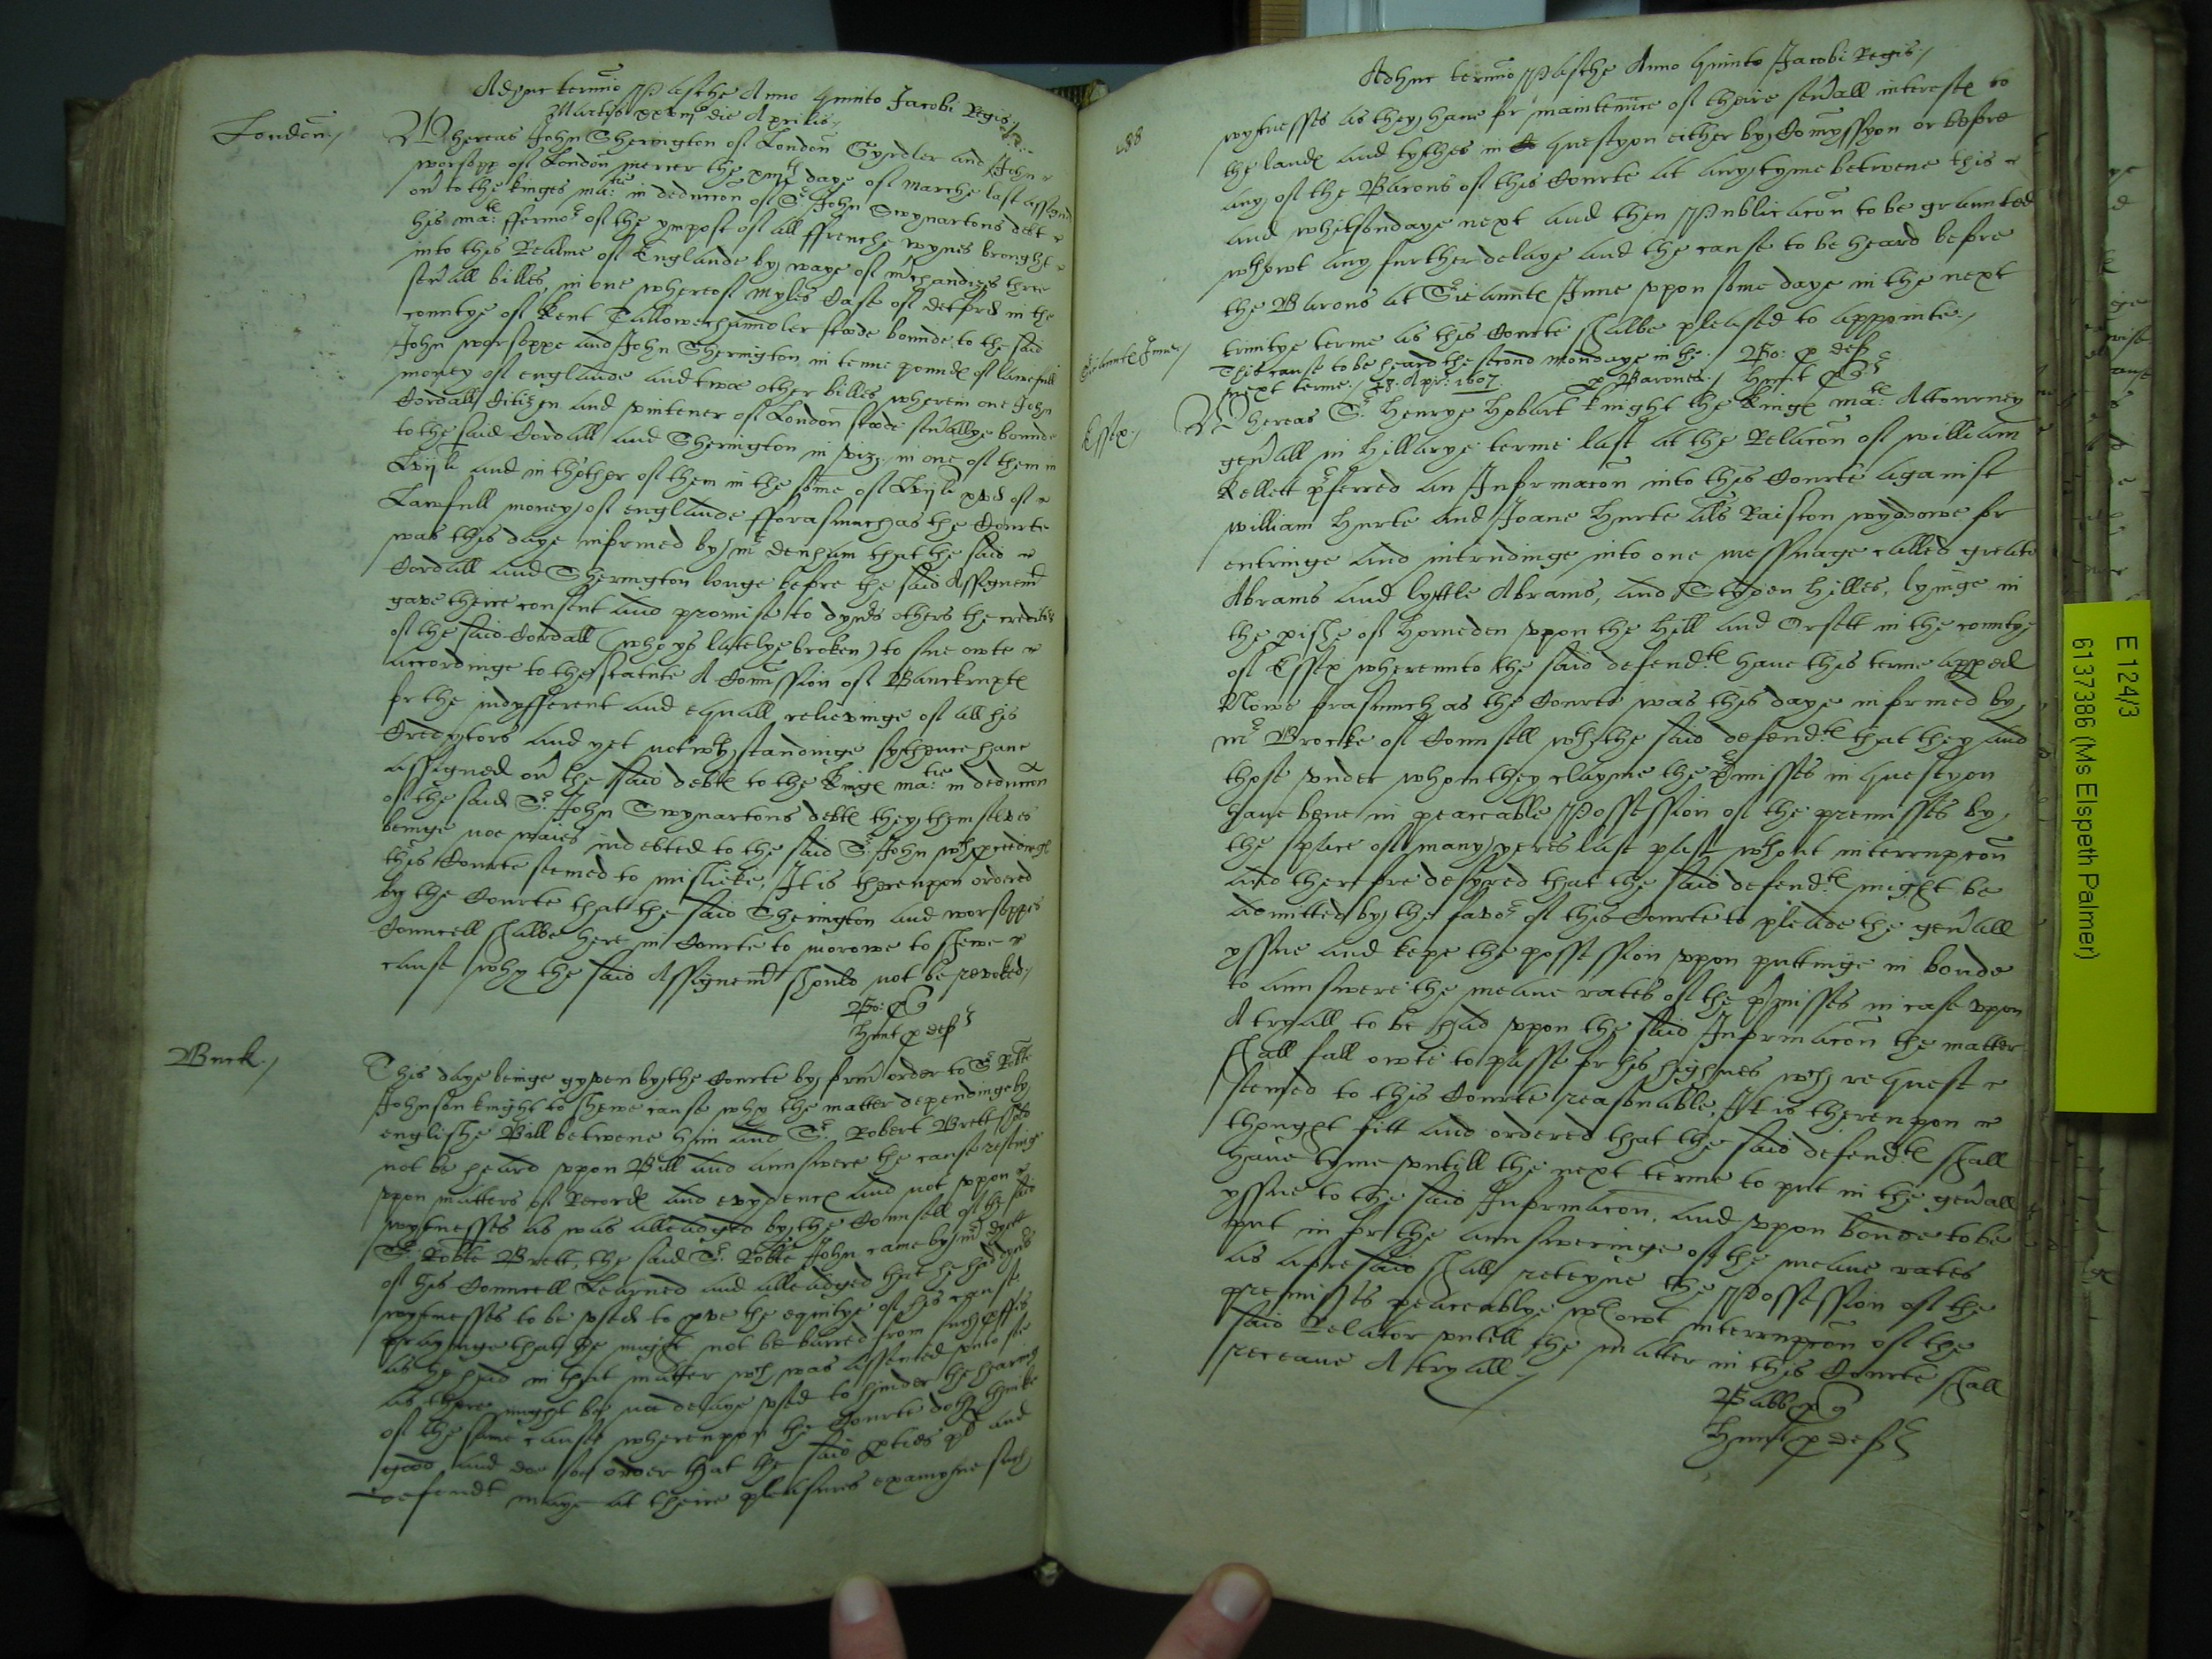 Adhuc termino Pasche Anno quinto Jacobi Regis
Martis xxviij die Aprilis
London
Whereas John Sherington of London Gyrdler and John
worsopp of London mercer the xiiijth daye of Marche last assigned
ov to the kinges matie in deduccon of Sr John Swynartons debt
his mats ffermor of the ympost of all ffrenche wynes brought
into this Realme of Englande by waye of mchandizes three
sevall billes, in one whereof Myles Case of Detford in the
countye of Kent Tallowechaundler stode bounde to the said
John worsoppe and John Sherington in tenne pounde of lawfull
money of englande and twoe other billes wherein one John
Cordall Citizen and vintener of London stode sevallye bounde
to the said Cordall and Sherington in vizt. in one of them in
Lvijli and in thother of them in the some of Lvijli xvs of
Lawfull money of englande fforasmuch as the Courte
was this daye informed by mr Denham that the said
Cordall and Sherington longe before the said Assignemt
gave theire consent and promise to dyvrs others the creditors
of the said Cordall (who ys latelye broken) to sue owte
accordinge to the statute A Comission of Banckrupte
for the indyfferent and equall relievinge of all his
Credytors and yet notwthstandinge sythence have
assigned ov the said debte to the Kinge matie in deduccon
of the said Sr John Swynartons debte they themselves
beinge noe waies indebted to the said Sr John wch proceedinge
this Courte seemed to mislieke, It is thereupon ordered
by the Courte that the said Sherington and worsoppes
Councell shalbe here in Courte to morowe to shewe
cause why the said Assignemt should not be revoked
Hunt p def
Buck.
This daye beinge gyven by the Courte by form order to Sr Robte
Johnson knight to shewe cause why the matter dependinge by
englishe Bill betwene him and Sr Robert Brett shold
not be heard vpon Bill and aunswere the cause restinge
vpon matters of Recorde and evydence and not vpon
wytnesses as was alleadged by the Counsell of the said
Sr Robte Brett, the said Sr Robte John came by mr
of his Councell Learned and alleadged that he had dyvrs
wytnesses to be vsed to pve the equitye of his cause
prayinge that he might not be barred from such proffes
as he had in that matter wch was assented vnto soe
as there might be noe delaye vsed to hinder the hearing
of the same cause whereupon the Courte doth thinke
good and doe soe order that the said pties plt and
defendt maye at theire pleasures examyne such
Adhuc termino Pasche Anno quinto Jacobi Regis
488
wytnesses as they have for maintennce of theire sevall intereste to
the lande and tythes in questyon either by Comyssyon or before
any of the Barons of this Courte at any tyme betwene this
and whitsondaye next and then Publicacon to be graunted
wthowt any further delaye and the cause to be heard before
the Barons at Srieaunte Inne vpon some daye in the next
trinitye terme as this Courte shalbe pleased to appointe
Srieaunte Inne
This cause to be heard the second mondaye in the
next terme. 28. Apr: 1607.
p Barones
p def
Hunt
Essex
Whereas Sr Henrye Hobart knight the Kinge mats Attourney
genall in Hillarye terme last at the Relacon of william
Kellett pferred an Informacon into this Courte against
william Hurte and Joane Hurte als Raiston wyddowe for
entringe and intrudinge into one messuage called greate
Abrams and lyttle Abrams, and Styden Hilles, lyinge in
the pishe of Horneden vpon the hill and Orsett in the countye
of Essex whereunto the said defendte have this terme apped
Nowe forasmuch as the Courte was this daye informed by
mr Brocke of Counsell wth the said defendte that they and
those vnder whom they clayme the pmisses in questyon
have bene in peaceable Possession of the premisses by
the space of many yeres last past wthout interrupcon
and therefore desyred that the said defendte might be
admitted by the favor of this Courte to pleade the genall
yssue and kepe the possession vpon puttinge in bonde
to aunswere the meane rates of the pmisses in case vpon
A tryall to be had vpon the said Informacon the matter
shall fall owte to passe for his highnes wch request
seemed to this Courte reasonable, It is thereupon
thought fitt and ordered that the said defendte shall
have tyme vntill the next terme to put in the genall
yssue to the said Informacon, and vpon bonde to be
put in for the aunsweringe of the meane rates
as aforesaid shall reteyne the Possession of the
premisses peaceablye wthowt interrupcon of the
said Relator vntill the matter in this Courte shall
receave A tryall
Hunt p def
E 124/3
6137386 (Ms Elspeth Palmer)